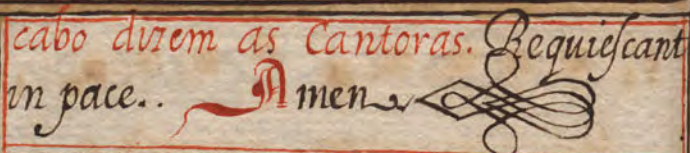 cabo dizem as Cantoras. Requieſcant
in pace.. Amen